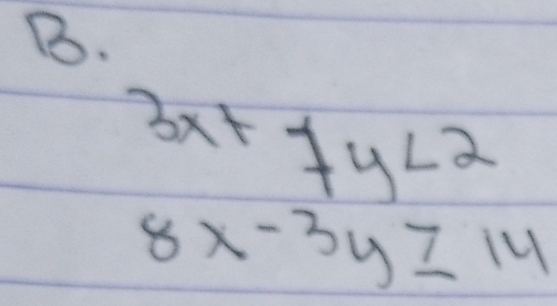 B.
3x + 7y < 2
8x - 3y ≥ 14